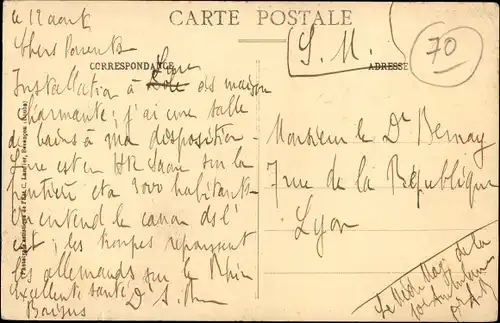 CARTE POSTALE
le 12 août
(S. M.)
70
Chers Parents
CORRESPONDANCE
ADRESSE
Installation à Jure ds maison
charmante ; j'ai une salle
de bains à ma disposition -
Jure est en Hte Saône sur la
frontière et a 3000 habitants
On entend le canon ds l'
est ; les troupes repoussent
les allemands sur le Rhin
Excellente santé
Baisers
Monsieur le Dr Bernay
7 rue de la République
Lyon
Le Méd. Maj. de la